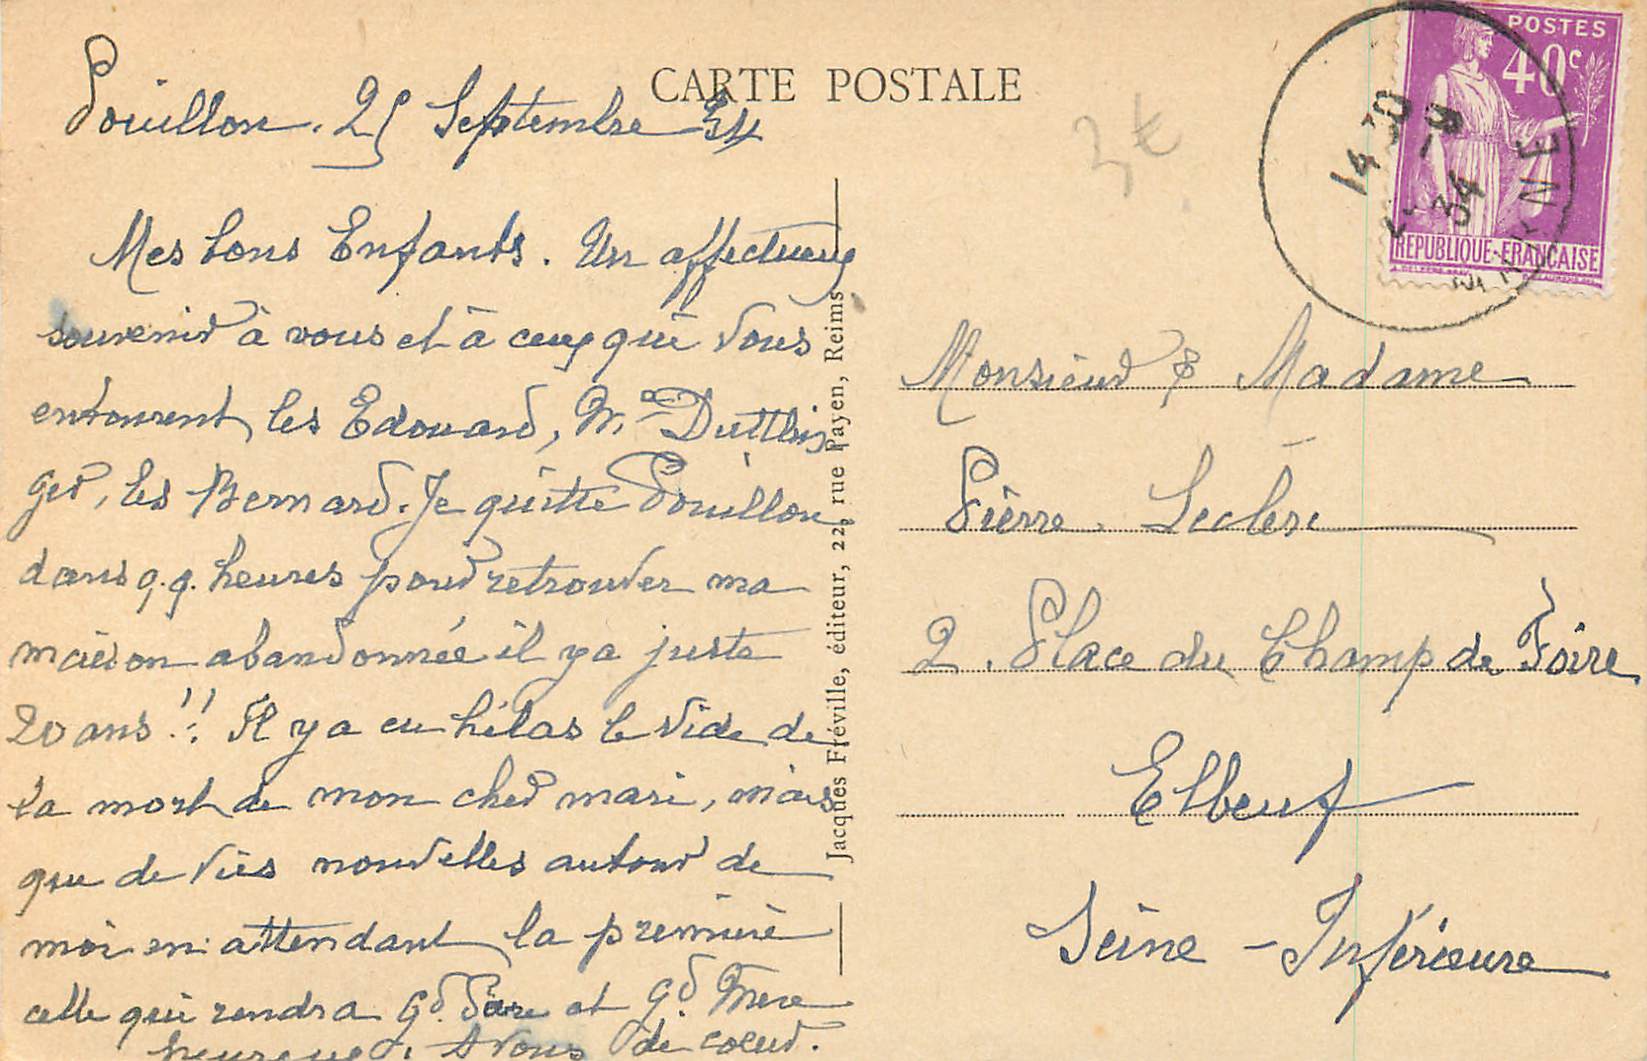 CARTE POSTALE
Pouillon. 25 Septembre 34
Mes bons Enfants. Un affectueux
souvenir à vous et à ceux qui vous
entourent, les Edouard, Mr Duttlin
ger, les Bernard. Je quitte Pouillon
dans q.q. heures pour retrouver ma
maison abandonnée il y a juste
20 ans !! Il y a eu hélas le vide de
la mort de mon cher mari, mais
que de vies nouvelles autour de
moi en attendant la première
celle qui rendra Gd. Père et Gd. Mère
heureux. A vous de coeur.
Jacques Fréville, éditeur, 22, rue Payen, Reims
3€
POSTES
40c
REPUBLIQUE-FRANCAISE
14 30
-9
34
MARNE
Monsieur & Madame
Pierre Leclerc
2. Place du Champ de Foire
Elbeuf
Seine-Inférieure